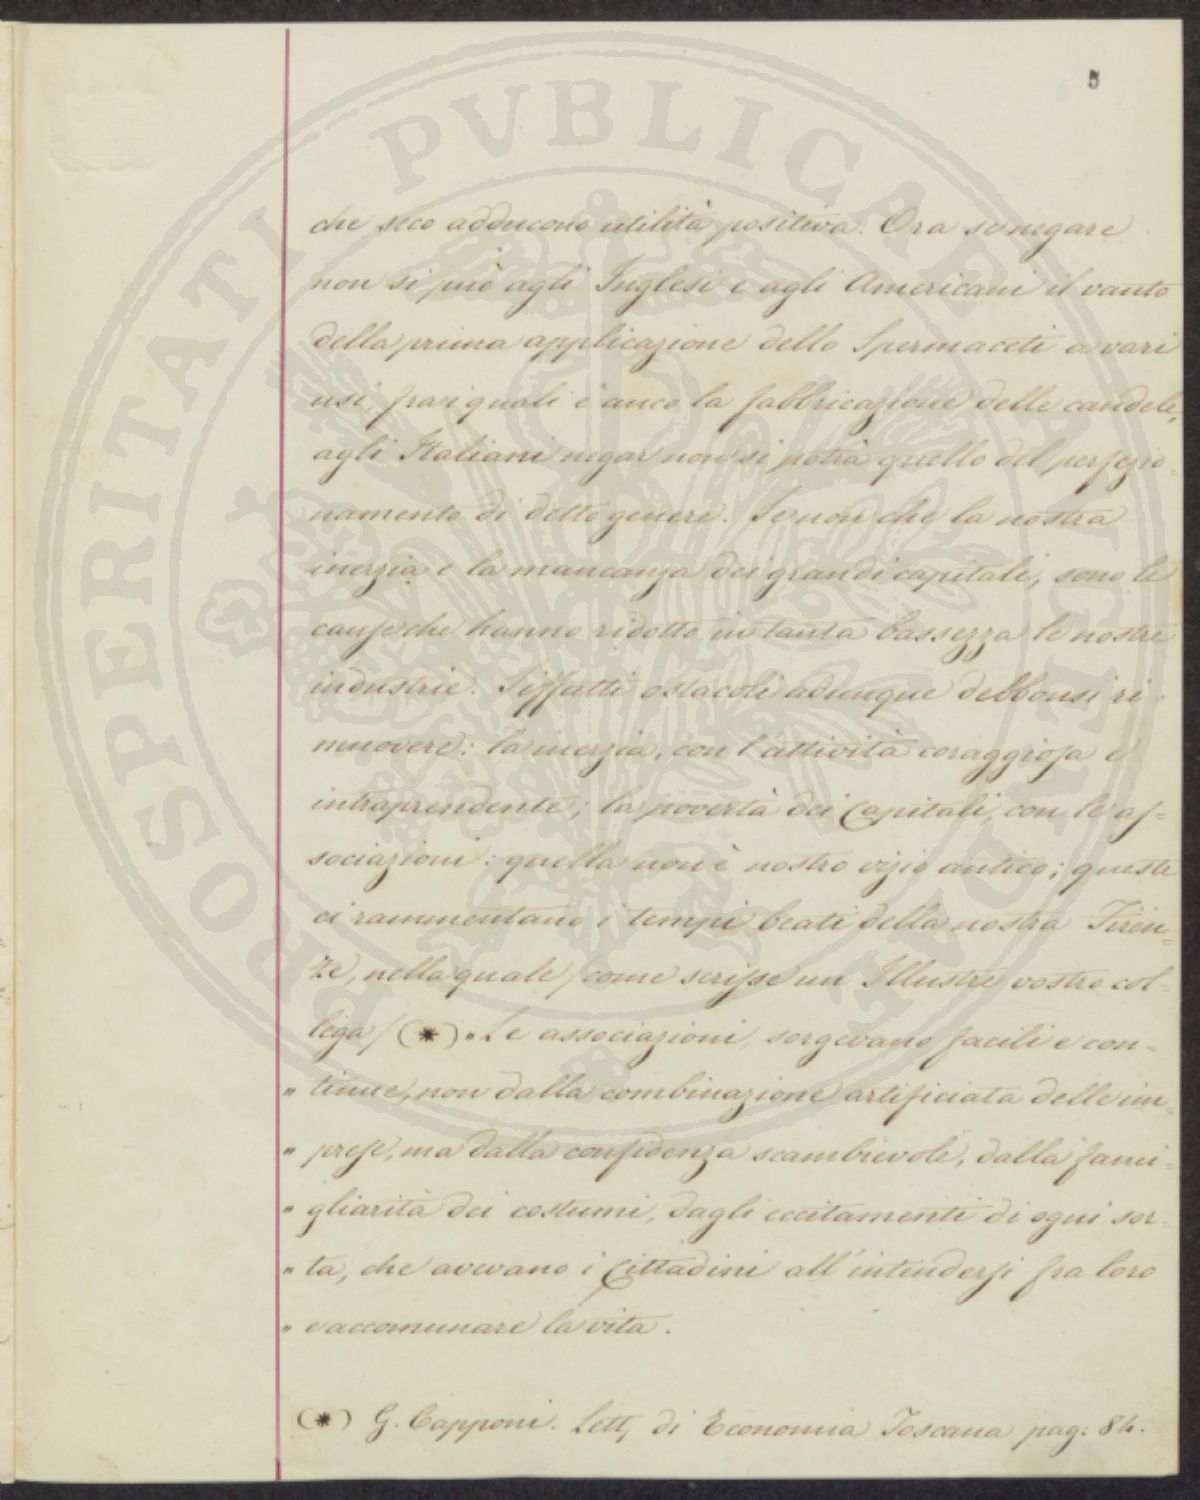 5
che seco adducono utilità positiva. Ora se negare
non si può agli Inglesi e agli Americani il vanto
della prima applicazione dello Spermaceti a vari
usi, fra i quali è anco la fabbricazione delle candele,
agli Italiani negar non si potrà quello del perfezio-
namento di detto genere. Se non che la nostra
inerzia e la mancanza dei grandi capitali, sono le
cause che hanno ridotto in tanta bassezza le nostre
industrie. Siffatti ostacoli adunque debbonsi ri-
muovere: la inerzia, con l'attività coraggiosa e
intraprendente; la povertà dei Capitali, con le as-
sociazioni: quella non è nostro vizio antico; queste
ci rammentano i tempi beati della nostra Firen-
ze, nella quale /come scrisse un Illustre vostro col-
lega/ (*) "Le associazioni, sorgevano facili e con-
" tinue, non dalla combinazione artificiata delle im-
" prese, ma dalla confidenza scambievole, dalla fami-
" gliarità dei costumi, dagli eccitamenti di ogni sor-
" ta, che avevano i Cittadini all'intendersi fra loro
" e accomunare la vita.
(*) G. Capponi. Lett, di Economia Toscana pag: 84.
PROSPERITATI PVBLICAE